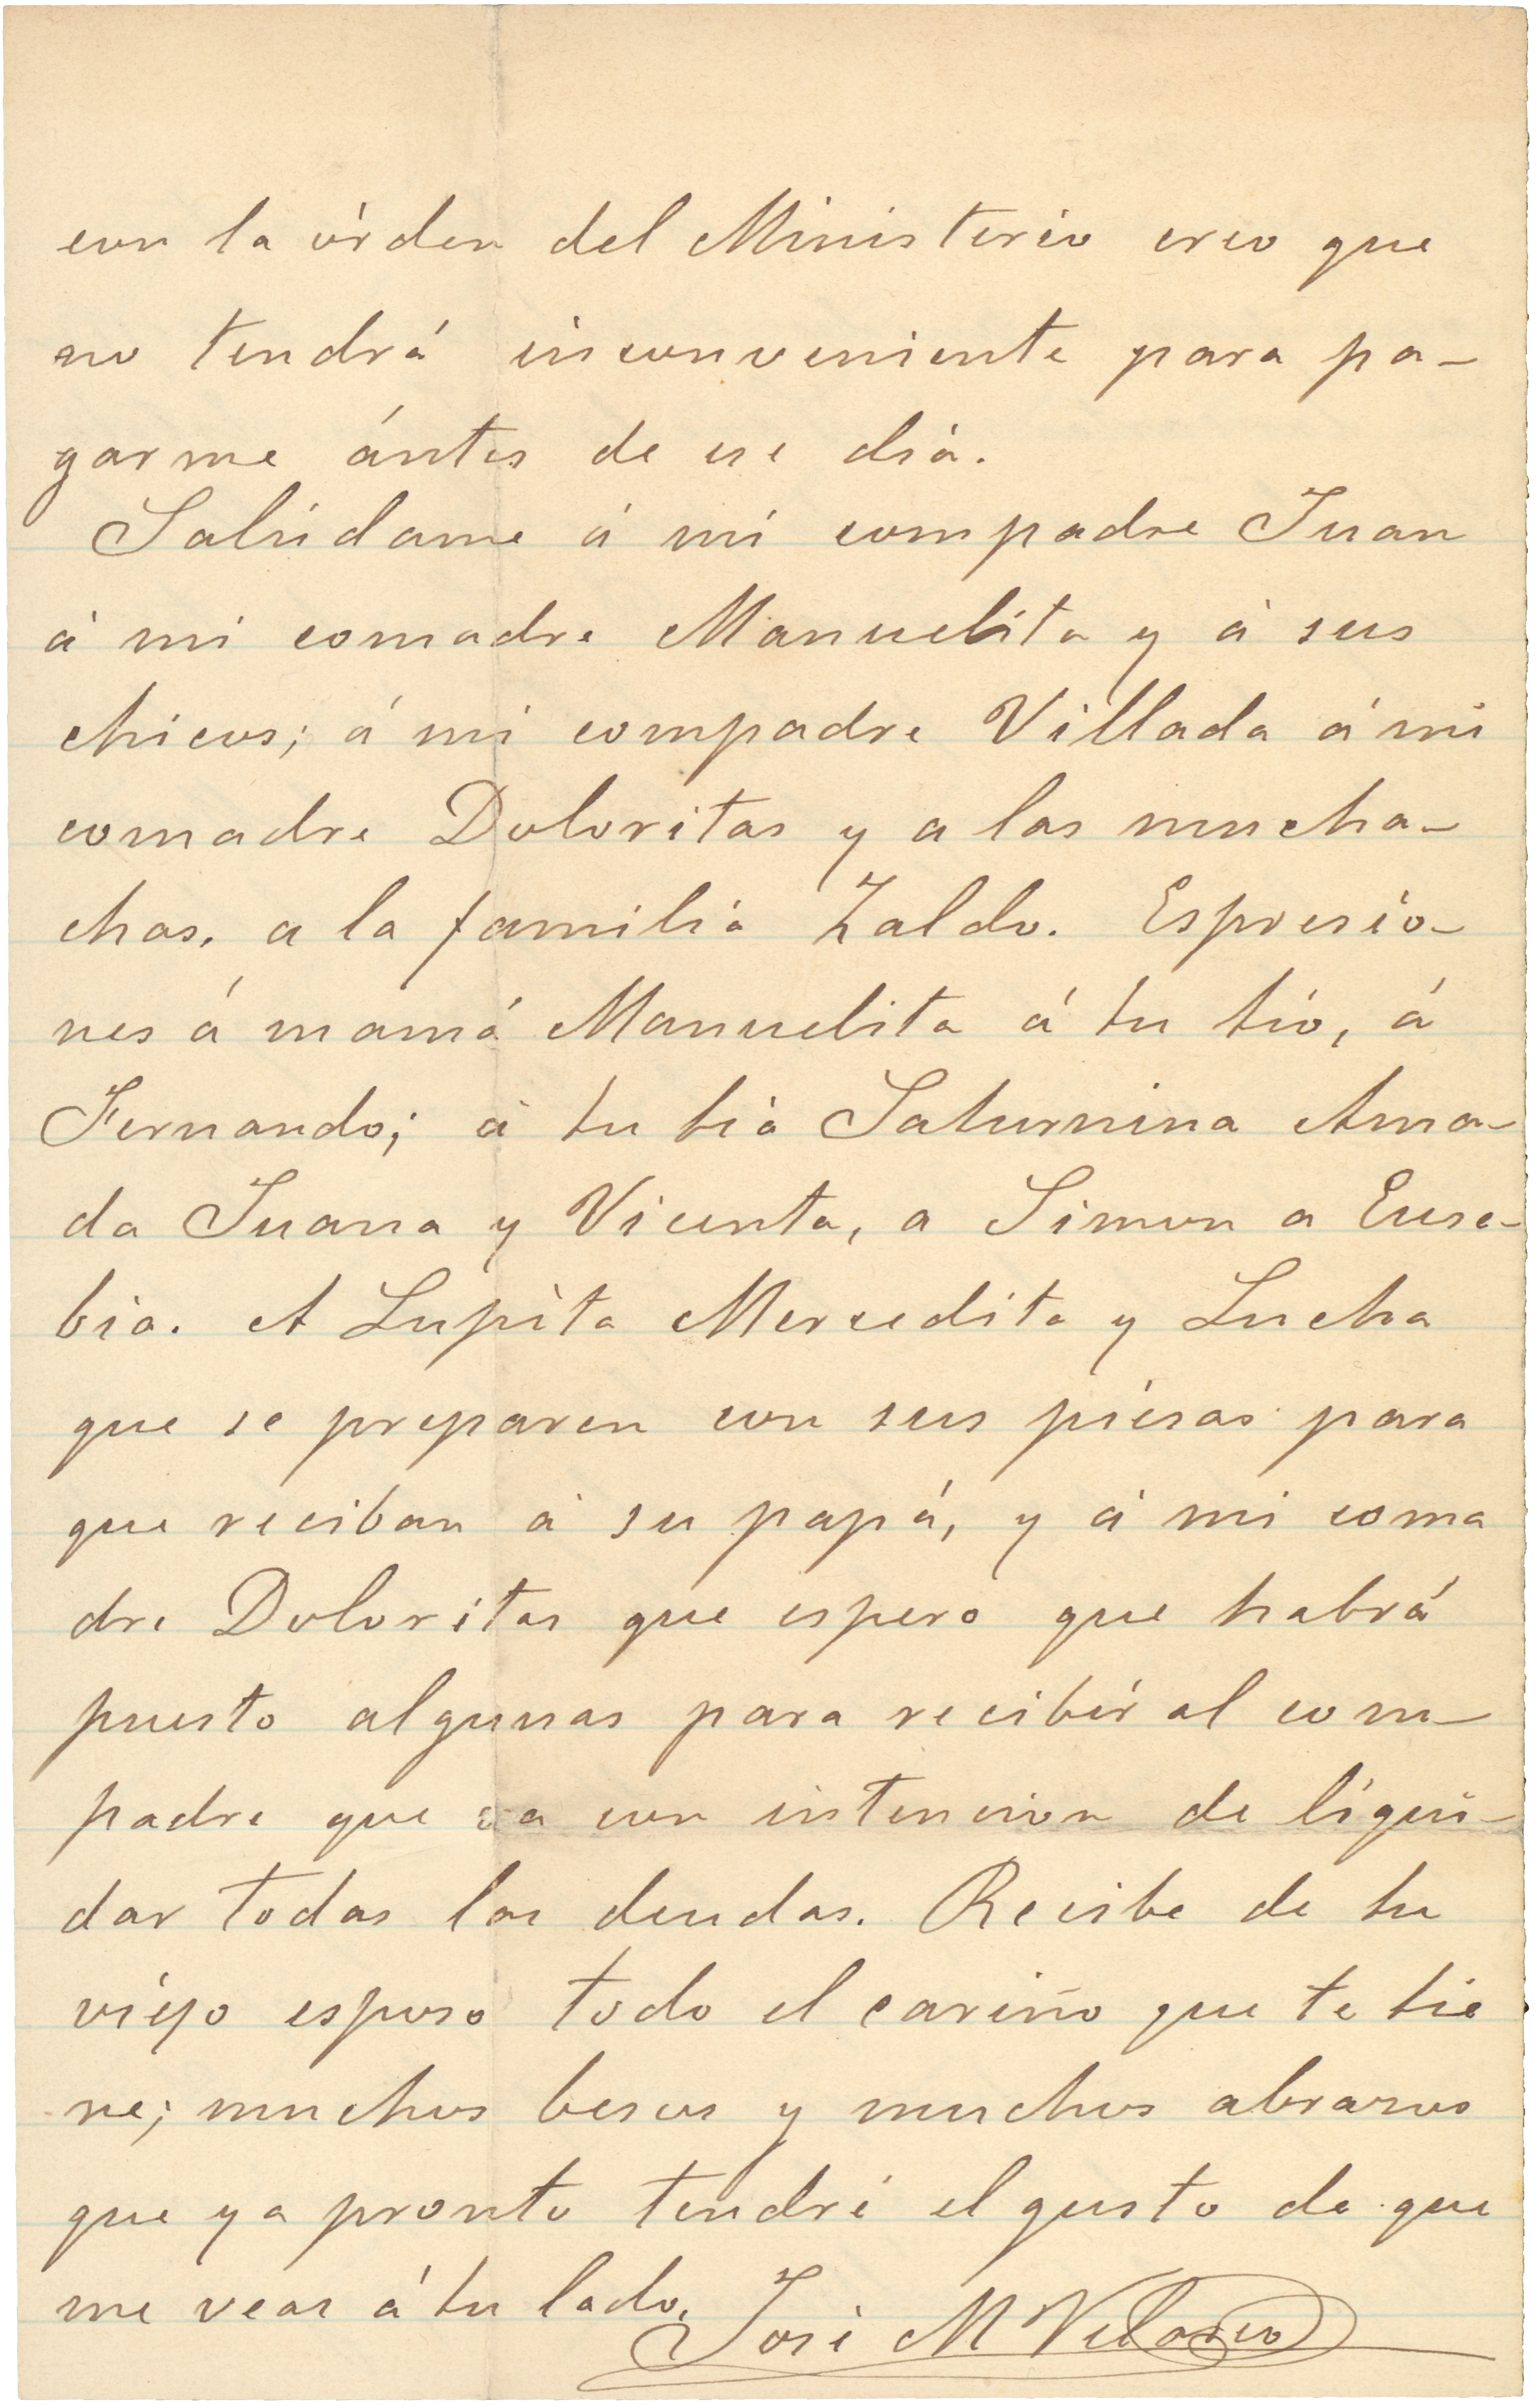 con la órden del Ministerio creo que
no tendrá inconveniente para pa-
garme ántes de ese dia.
Salúdame á mi compadre Juan
á mi comadre Manuelita y á sus
chicos; á mi compadre Villada á mi
comadre Doloritas y a las mucha-
chas, a la familia Zaldo. Espresio-
nes á mamá Manuelita á tu tio, á
Fernando; á tu tia Saturnina Ama-
da Juana y Vicenta, a Simon a Euse-
bia. A Lupita Mercedita y Lucha
que se preparen con sus piesas para
que reciban á su papá, y á mi coma
dre Doloritas que espero que habrá
puesto algunas para recibir al com-
padre que va con intencion de liqui-
dar todas las deudas. Recibe de tu
viejo esposo todo el cariño que te tie
ne; muchos besos y muchos abrazos
que ya pronto tendré el gusto de que
me veas á tu lado.
José M Velasco